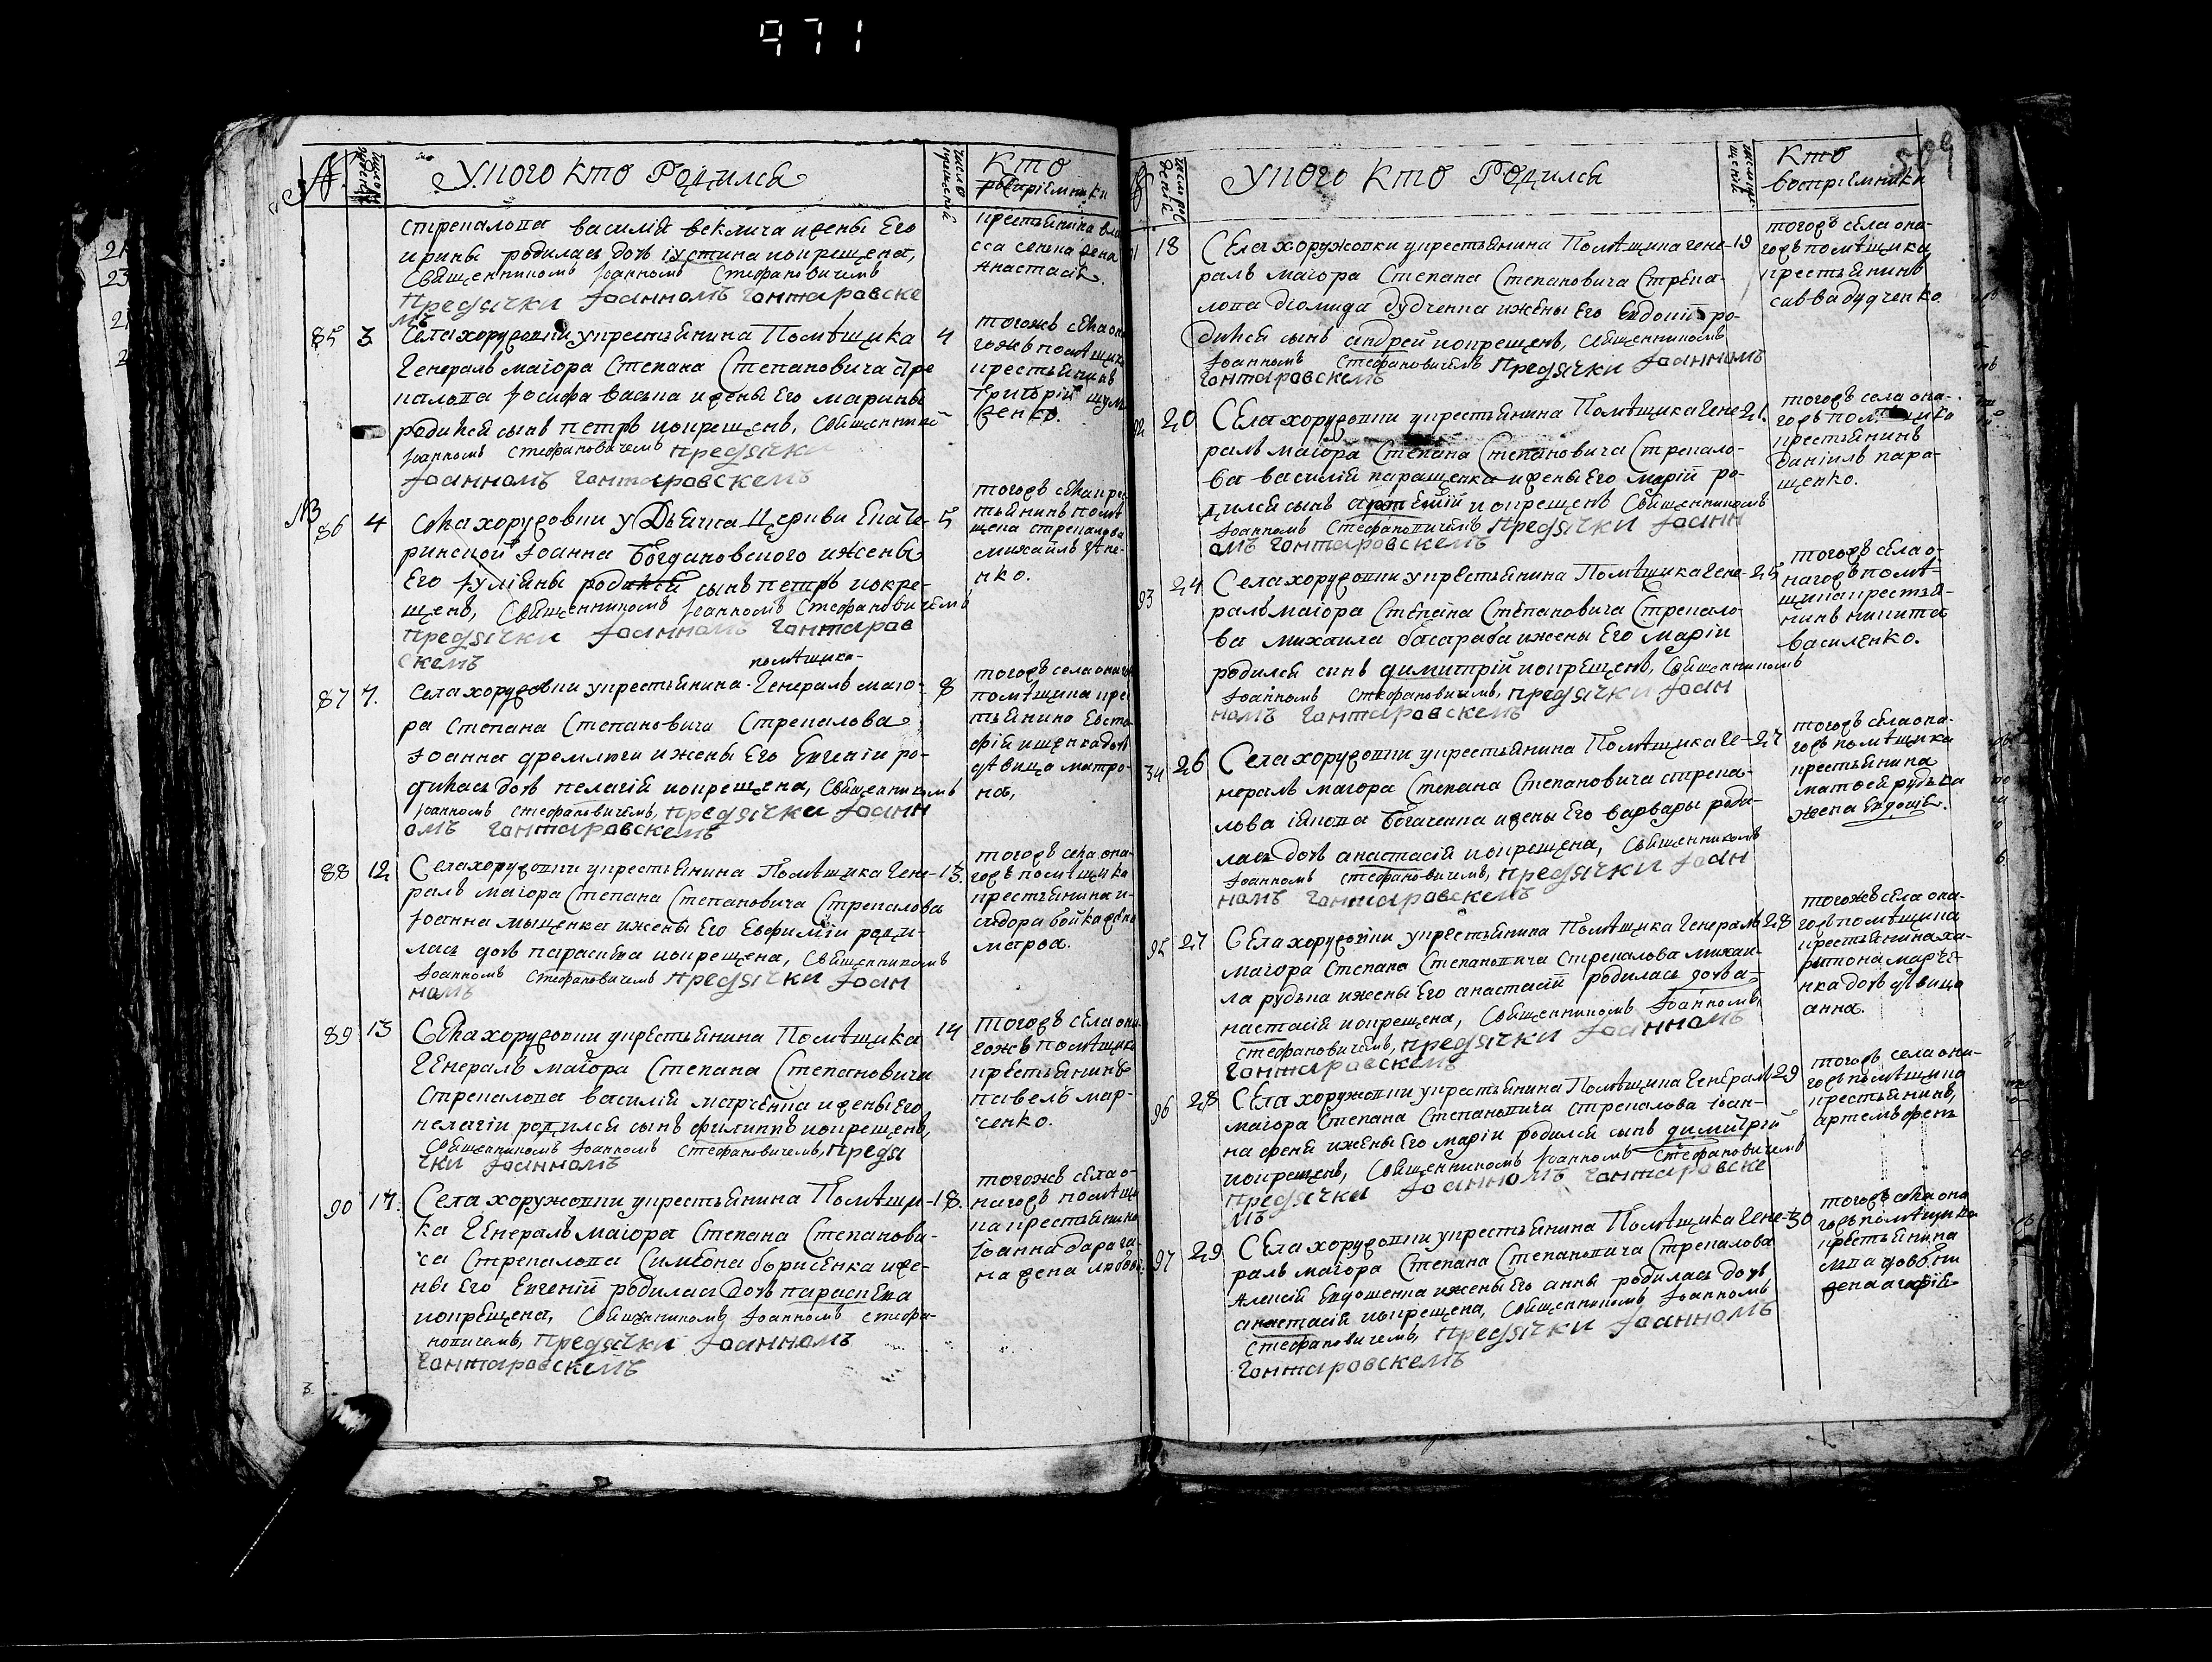 971
№
У кого кто Родился
число крещения
Кто восприемники
стрекалова василия веклича и жены Его
ирины родилась дочь іустина и окрещена,
Священникомъ Іоанномъ Стефановичемъ
При дячки Іоанномъ Гонтаровске
мъ
крестьянина вла
сса жена
Анастасія.
85 3 Села хоружовки у крестьянина Помѣщика 4
Генералъ маіора Степана Степановича Стре
калова Іосифа васка и жены Его Марины
родился сынъ петръ и окрещенъ, Священник
Іоанномъ Стефановичемъ При дячки
Іоанномъ Гонтаровскемъ
тогожъ села она
гожъ помѣщик
крестьянинъ
Григорій шум
ченко.
№
86 4 Села хоружовки у Дьячка Церкви Екате- 5
ринской Іоанна Богдановского и жены
Его Іуліяны родился сынъ петръ и окре-
щенъ, Священникомъ Іоанномъ Стефановичемъ
При дячки Іоанномъ Гонтаров
скемъ
тогожъ села кре
тьянинъ помѣ
щика стрекалова
михаилъ
нко.
помѣщика
87 7. Села хоружовки у крестьянина Генералъ маіо- 8
ра Степана Степановича Стрекалова
Іоанна дремлюги и жены Его Евгеніи ро-
дилась дочь пелагія и окрещена, Священникомъ
Іоанномъ Стефановичемъ, При дячки Іоанн
омъ Гонтаровскемъ
тогожъ села оногожъ
помѣщика крес
тьянина Евста
фія ищенка дочь
дѣвица матро-
на,
88 12 Села хоружовки у крестьянина Помѣщика Гене- 13.
ралъ маіора Степана Степановича Стрекалова
Іоанна мыщенка и жены Его Евфиміи роди-
лась дочь параскева и окрещена, Священникомъ
Іоанномъ Стефановичемъ При дячки Іоан
номъ
тогожъ села она-
гожъ помѣщика
крестьянина и-
сидора бойка жена
марфа.
89 13 Села хоружовки у крестьянина Помѣщика 14
Генералъ маіора Степана Степановича
Стрекалова василія марченка и жены Его
пелагіи родился сынъ филиппъ и окрещенъ,
Священникомъ Іоанномъ Стефановичемъ, При дя
чки Іоанномъ
тогожъ села она-
гожъ помѣщика
крестьянинъ
павелъ мар-
ченко.
90 17. Села хоружовки у крестьянина Помѣщи- 18.
ка Генералъ маіора Степана Степанови-
ча Стрекалова Симеона борисенка и же-
ны Его Евгеніи родилась дочь параскева
и окрещена, Священникомъ Іоанномъ Стефа-
новичемъ, При дячки Іоанномъ
Гонтаровскемъ
тогожъ села о-
нагожъ помѣщи
ка крестьянина
Іоанна дарага-
на жена любовь.
509
У кого кто Родился
Кто
восприемники
91 18 Села хоружовки у крестьянина Помѣщика Гене- 19
ралъ маіора Степана Степановича Стрека-
лова діомида дудченка и жены Его Евдокіи ро-
дился сынъ андрей и окрещенъ, Священникомъ
Іоанномъ Стефановичемъ При дячки Іоанномъ
Гонтаровскемъ
тогожъ села она-
гожъ помѣщика
крестьянинъ
савва дудченко
92 20 Села хоружовки у крестьянина Помѣщика Гене- 21.
ралъ маіора Степана Степановича Стрекало-
ва василія паращенка и жены Его маріи ро-
дился сынъ артемій и окрещенъ Священникомъ
Іоанномъ Стефановичемъ При дячки Іоанн
омъ Гонтаровскемъ
тогожъ села она-
гожъ помѣщика
крестьянинъ
даніилъ пара-
щенко.
93 24 Села хоружовки у крестьянина Помѣщика Гене- 25
ралъ маіора Степана Степановича Стрекало-
ва михаила басараба и жены Его маріи
родился сынъ димитрій и окрещенъ, Священникомъ
Іоанномъ Стефановичемъ, При дячки Іоан
номъ Гонтаровскемъ
тогожъ села о-
нагожъ помѣ-
щика крестья-
нинъ никита
василенко.
94 26 Села хоружовки у крестьянина Помѣщика Ге- 27
нералъ маіора Степана Степановича стрека-
лова іякова богаченка и жены Его варвары роди-
лась дочь анастасія и окрещена, Священникомъ
Іоанномъ Стефановичемъ, При дячки Іоан
номъ Гонтаровскемъ
тогожъ села она-
гожъ помѣщика
крестьянина
матвея рудька
жена Евдокія.
95 27 Села хоружовки у крестьянина Помѣщика Генералъ 28
маіора Степана Степановича Стрекалова михаи-
ла рудька и жены Его анастасіи родилась дочь а-
настасія и окрещена, Священникомъ Іоанномъ
Стефановичемъ, При дячки Іоанномъ
Гонтаровскемъ
тогожъ села она-
гожъ помѣщика
крестьянина ха-
ритона марче-
нка дочь дѣвица
анна.
96 28 Села хоружовки у крестьянина Помѣщика Генералъ 29
маіора Степана Степановича Стрекалова Іоан-
на феня и жены Его маріи родился сынъ димитрій
и окрещенъ, Священникомъ Іоанномъ Стефановичемъ
При дячки Іоанномъ Гонтаровске
мъ
тогожъ села она-
гожъ помѣщика
крестьянинъ,
артемъ фень
97 29 Села хоружовки у крестьянина Помѣщика Гене- 30
ралъ маіора Степана Степановича Стрекалова
Алексія Евдошенка и жены Его анны родилась дочь
анастасія и окрещена, Священникомъ Іоанномъ
Стефановичемъ, При дячки Іоанномъ
Гонтаровскемъ
тогожъ села она
гожъ помѣщика
крестьянина
жена агафія